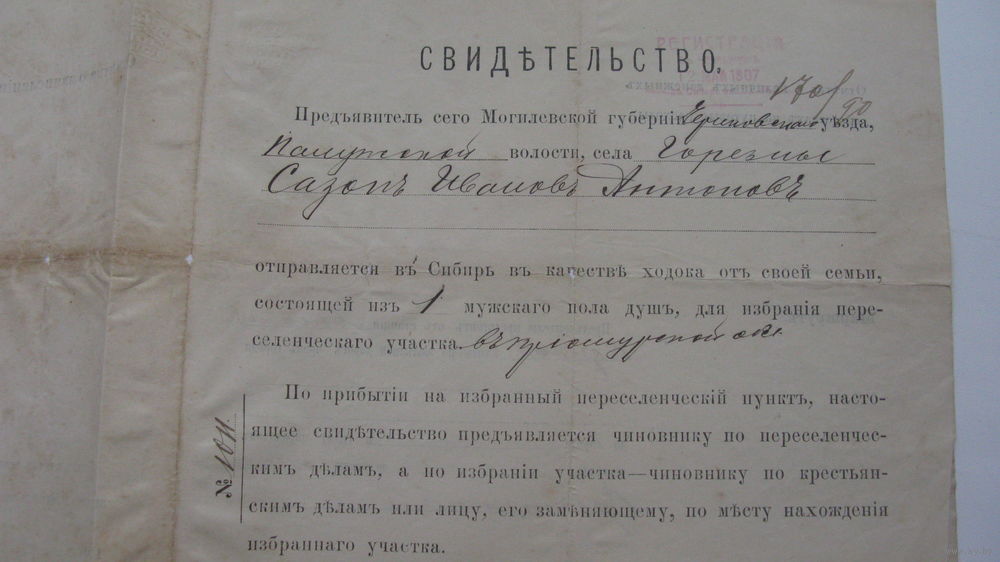 СВИДѢТЕЛЬСТВО.
РЕГИСТРАЦІЯ
МАЯ 1907
Предъявитель сего Могилевской губерніи Чериковскаго уѣзда,
волости, села Горезны
Сазонъ Ивановъ Антоновъ
отправляется въ Сибирь въ качествѣ ходока отъ своей семьи,
состоящей изъ 1 мужскаго пола душъ, для избранія пере-
селенческаго участка въ обл.
По прибытіи на избранный переселенческій пунктъ, насто-
ящее свидѣтельство предъявляется чиновнику по переселенчес-
кимъ дѣламъ, а по избраніи участка—чиновнику по крестьян-
скимъ дѣламъ или лицу, его замѣняющему, по мѣсту нахожденія
избраннаго участка.
№ 1011.